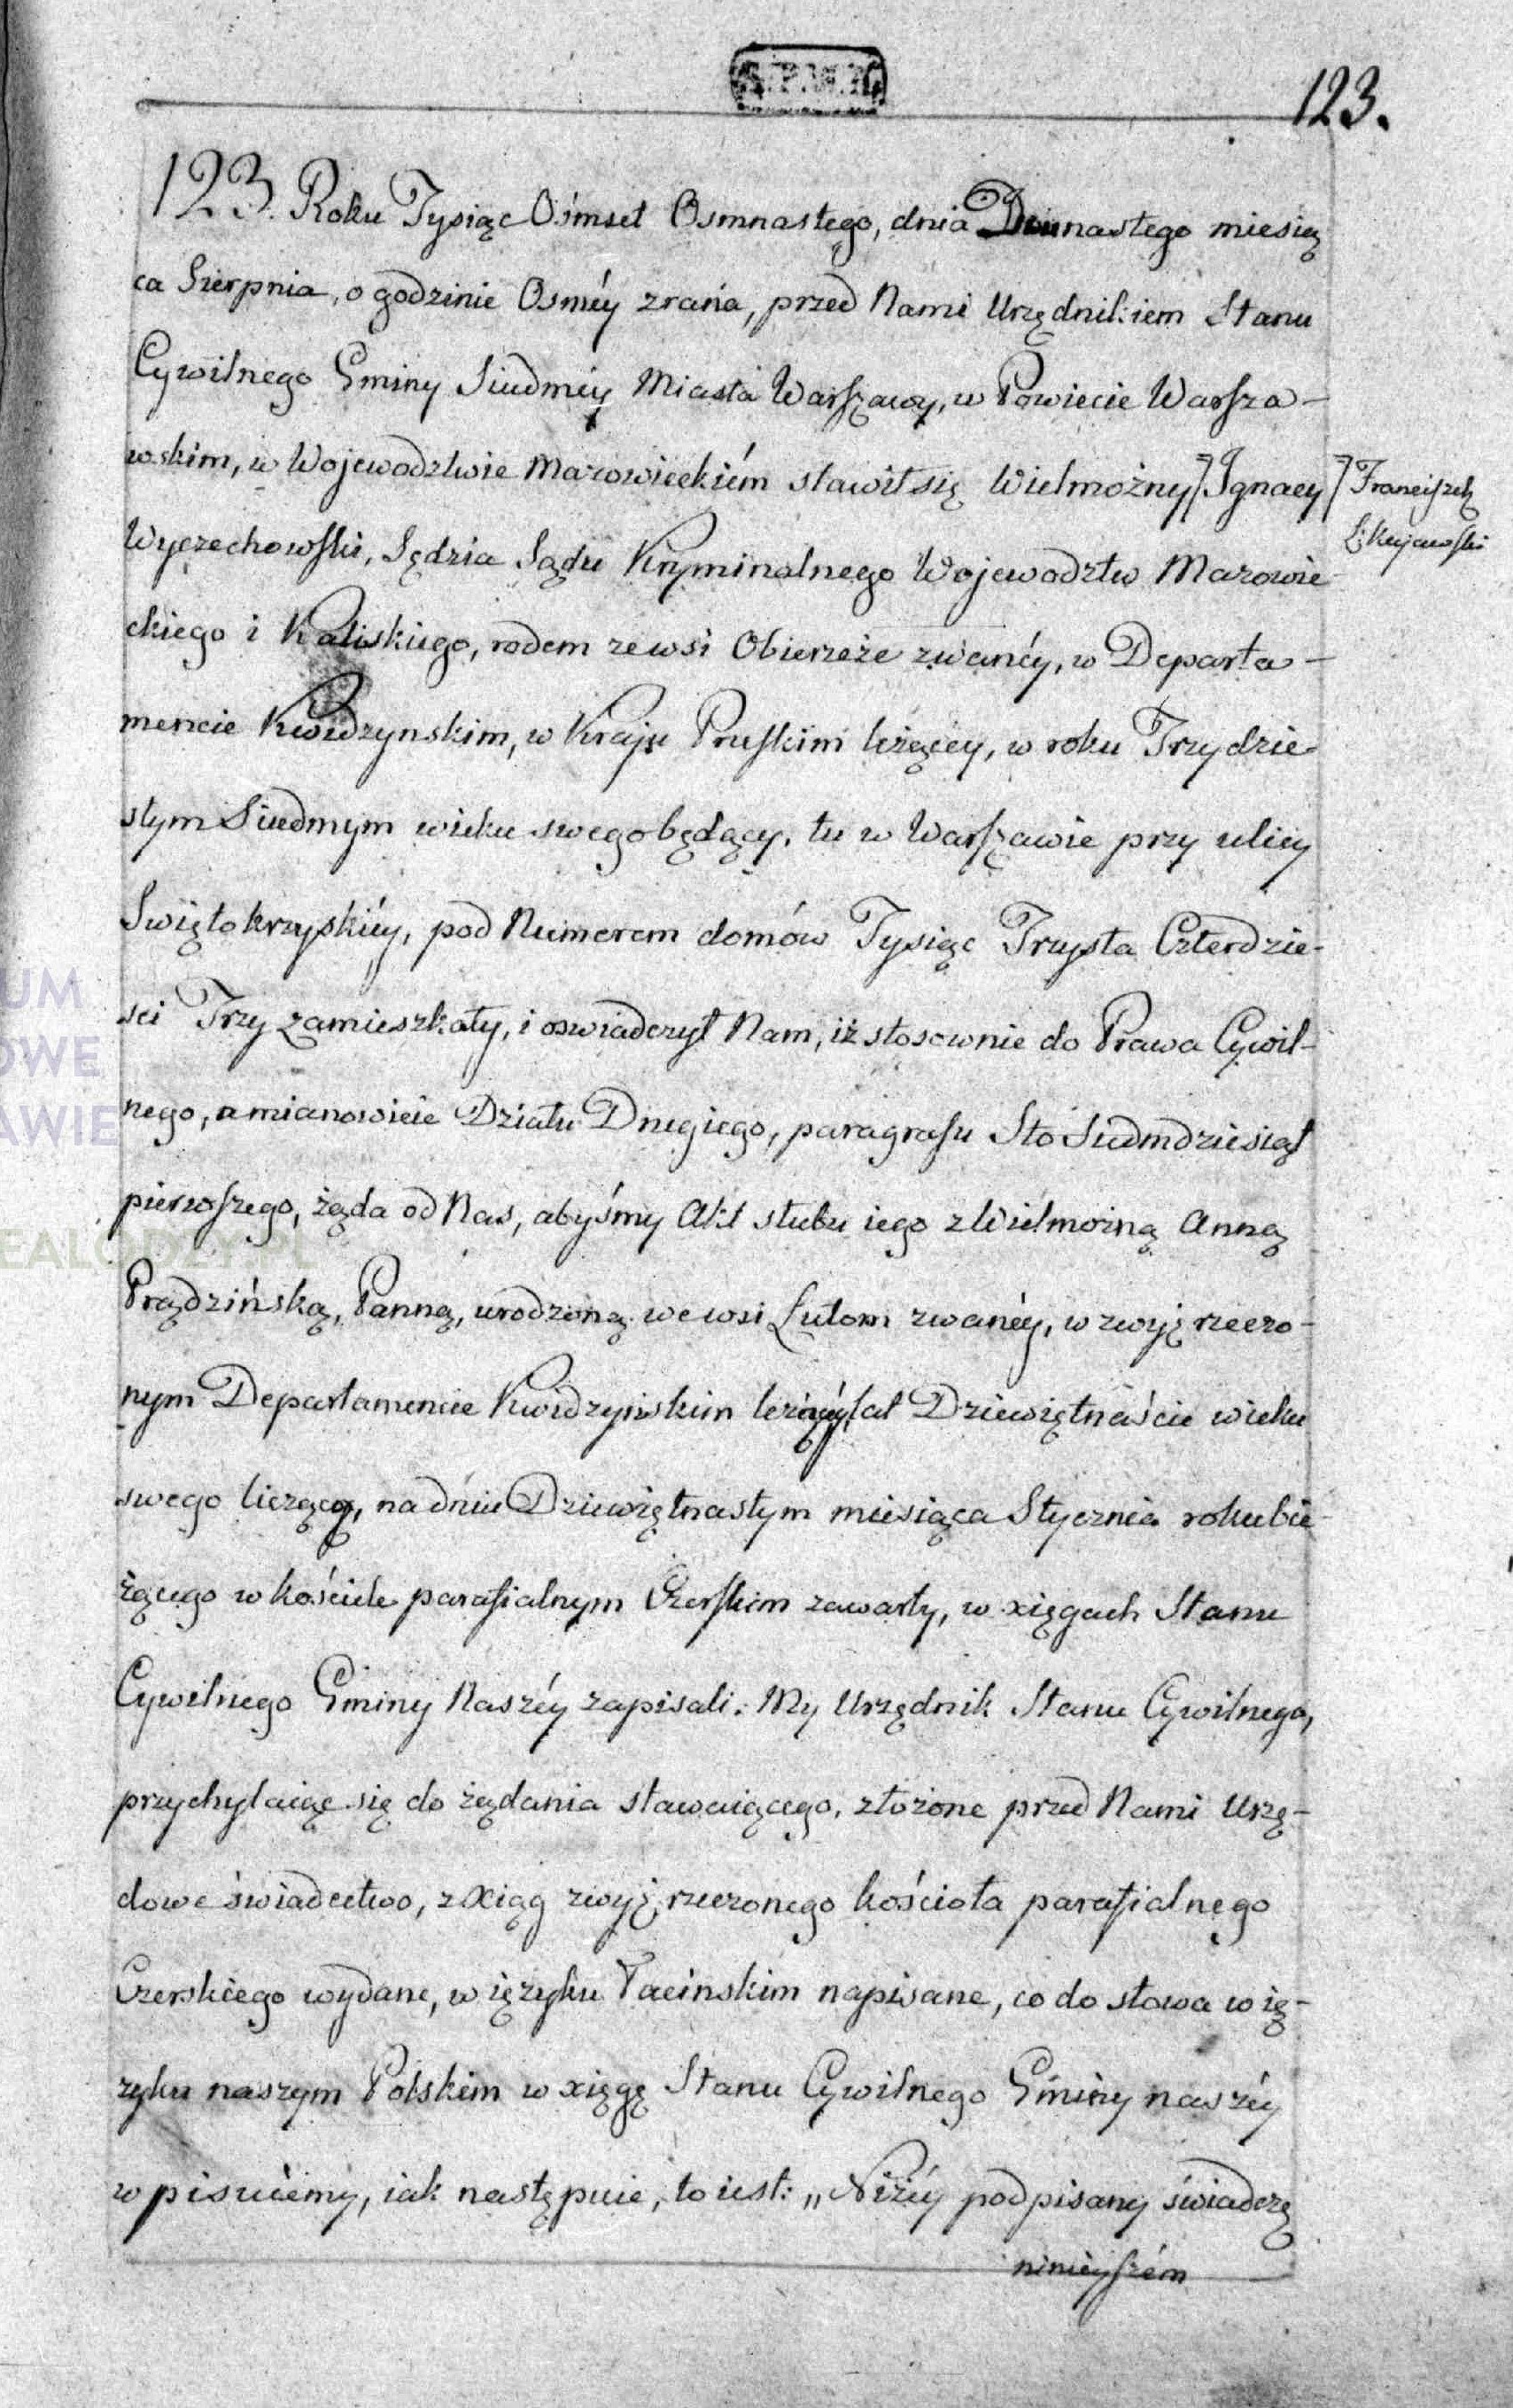 123.
123. Roku Tysiąc Ośmset Osmnastego, dnia Dwunastego miesią
ca Sierpnia, o godzinie Osméy zrana, przed Nami Urzędnikiem Stanu
Cywilnego Gminy Siudméy Miasta Warszawy, w Powiecie Warsza-
wskim, w Wojewodztwie Mazowieckiém stawił się Wielmożny Ignacy
Franciszek
Kujawski
Wyczechowski, Sędzia Sądu Kryminalnego Wojewodztw Mazowie
ckiego i Kaliskiego, rodem ze wsi Obierzeże zwanéy, w Departa-
mencie Kwidzynskim, w Kraju Pruskim leżącey, w roku Trzydzie
stym Siudmym wieku swego będący, tu w Warszawie przy ulicy
Swiętokrzyskiéy, pod Numerem domów Tysiąc Trzysta Czterdzie-
sci Trzy zamieszkały, i oswiadczył Nam, iż stosownie do Prawa Cywil-
nego, a mianowicie Działu Drugiego, paragrafu Sto Siudmdziesiąt
pierwszego, żąda od Nas, abyśmy Akt slubu iego z Wielmożną Anną
Prądzińską, Panną, urodzoną we wsi Lutom zwanéy, w zwyż rzeczo-
nym Departamencie Kwidzyńskim leżącéy, lat Dziewiętnaście wieku
swego liczącą, na dniu Dziewiętnastym miesiąca Stycznia roku bie
żącego w kościele parafialnym Czerskim zawarty, w xięgach Stanu
Cywilnego Gminy Naszéy zapisali. My Urzędnik Stanu Cywilnego,
przychylaiąc się do żądania stawaiącego, złożone przed Nami Urzę-
dowe świadectwo, z Xiąg zwyż rzeczonego kościoła parafialnego
Czerskiego wydane, w ięzyku Łacinskim napisane, co do słowa w ię-
zyku naszym Polskim w xięgę Stanu Cywilnego Gminy naszéy
wpisuiemy, iak następuie, to iest: „Niżéy podpisany świadczę
ninieyszém
UM
OWE
AWIE
EALODZY.PL